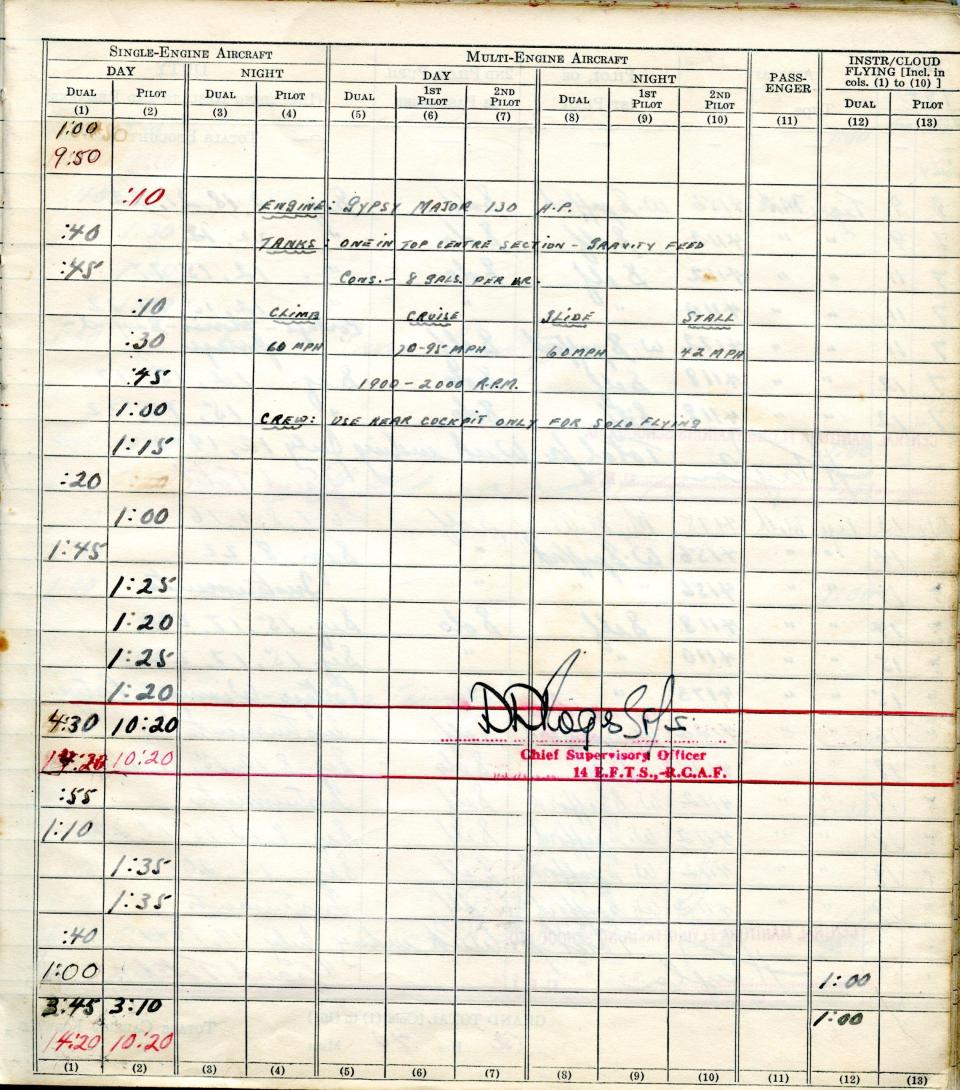 SINGLE-ENGINE AIRCRAFT MULTI-ENGINE AIRCRAFT PASS-ENGER INSTR/CLOUD FLYING [Incl. in cols. (1) to (10) ]
DAY NIGHT DAY NIGHT
DUAL PILOT DUAL PILOT DUAL 1ST PILOT 2ND PILOT DUAL 1ST PILOT 2ND PILOT DUAL PILOT
(1) (2) (3) (4) (5) (6) (7) (8) (9) (10) (11) (12) (13)
1:00
9:50
:10 ENGINE: GYPSY MAJOR 130 H.P.
:40 TANKS: ONE IN TOP CENTRE SECTION - GRAVITY FEED
:45 CONS.- 8 GALS. PER HR.
:10 CLIMB CRUISE GLIDE STALL
:30 60 MPH 70-95 MPH 60 MPH 42 MPH
:45 1900-2000 R.P.M.
1:00 CREW: USE REAR COCKPIT ONLY FOR SOLO FLYING
1:15
:20
1:00
1:45
1:25
1:20
1:25
1:20
4:30 10:20
10:20 Chief Supervisory Officer
14 E.F.T.S., R.C.A.F.
:55
1:10
1:35
1:35
:40
1:00 1:00
3:45 3:10 1:00
14:20 10:20
(1) (2) (3) (4) (5) (6) (7) (8) (9) (10) (11) (12) (13)